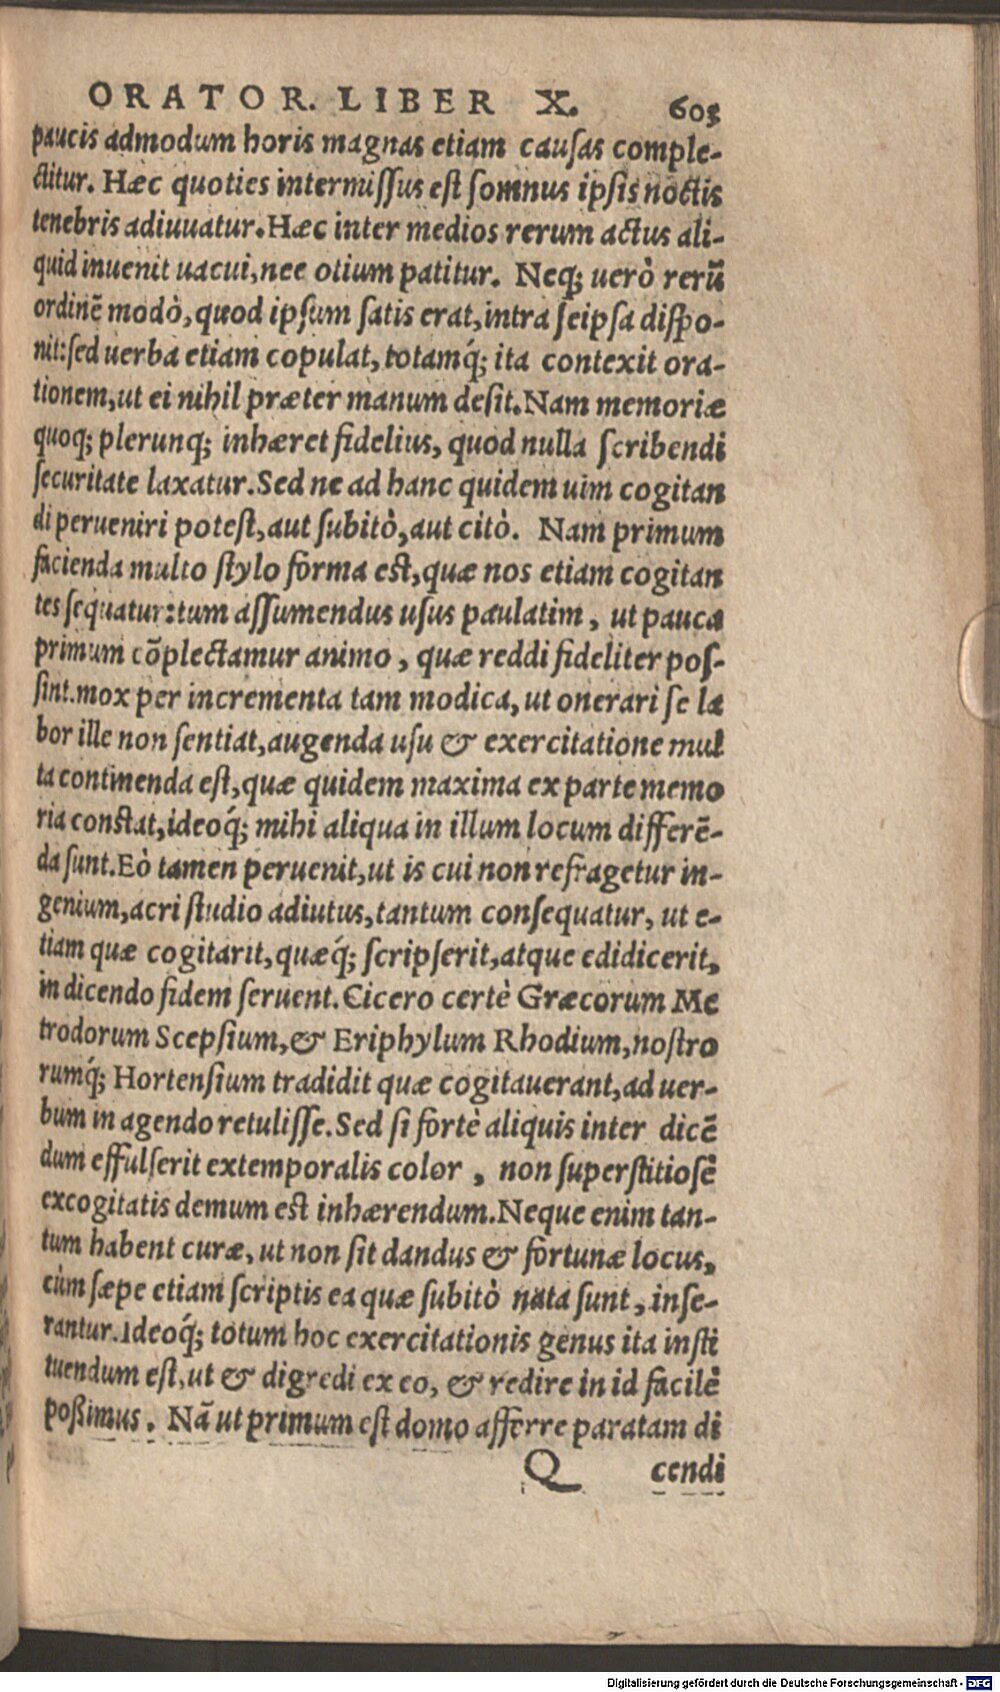 ORATOR. LIBER X. 603
paucis admodum horis magnas etiam causas comple-
ctitur. Hæc quoties intermissus est somnus ipsis noctis
tenebris adiuuatur. Hæc inter medios rerum actus ali-
quid inuenit uacui, nec otium patitur. Neq; uerò rerū
ordinē modò, quod ipsum satis erat, intra seipsa dispo-
nit: sed uerba etiam copulat, totamq́; ita contexit ora-
tionem, ut ei nihil præter manum desit. Nam memoriæ
quoq; plerunq; inhæret fidelius, quod nulla scribendi
securitate laxatur. Sed ne ad hanc quidem uim cogitan
di perueniri potest, aut subitò, aut citò. Nam primum
facienda multo stylo forma est, quæ nos etiam cogitan
tes sequatur: tum assumendus usus paulatim, ut pauca
primum cōplectamur animo, quæ reddi fideliter pos-
sint. mox per incrementa tam modica, ut onerari se la
bor ille non sentiat, augenda usu & exercitatione mul
ta continenda est, quæ quidem maxima ex parte memo
ria constat, ideoq́; mihi aliqua in illum locum differē-
da sunt. Eò tamen peruenit, ut is cui non refragetur in-
genium, acri studio adiutus, tantum consequatur, ut e-
tiam quæ cogitarit, quæq́; scripserit, atque edidicerit,
in dicendo fidem seruent. Cicero certè Græcorum Me
trodorum Scepsium, & Eriphylum Rhodium, nostro
rumq́; Hortensium tradidit quæ cogitauerant, ad uer-
bum in agendo retulisse. Sed si fortè aliquis inter dicē
dum effulserit extemporalis color, non superstitiosè
excogitatis demum est inhærendum. Neque enim tan-
tum habent curæ, ut non sit dandus & fortunæ locus,
cùm sæpe etiam scriptis ea quæ subitò nata sunt, inse-
rantur. Ideoq́; totum hoc exercitationis genus ita insti
tuendum est, ut & digredi ex eo, & redire in id facilè
poßimus. Nā ut primum est domo afferre paratam di
Q cendi
Digitalisierung gefördert durch die Deutsche Forschungsgemeinschaft - DFG